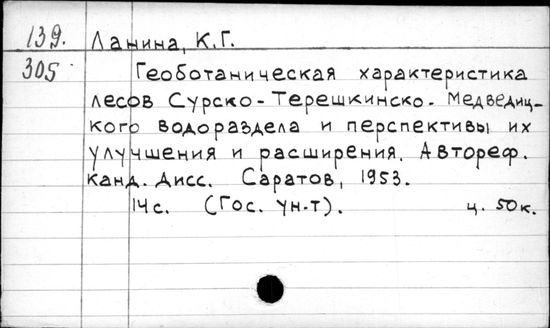 139. Ланина, К.Г.
305 Геоботаническая характеристика
лесов Сурско-Терешкинско-Медведиц-
кого водораздела и перспективы их
улучшения и расширения. Автореф.
канд. дисс. Саратов, 1953.
14с. (Гос. ун-т). ц. 50к.